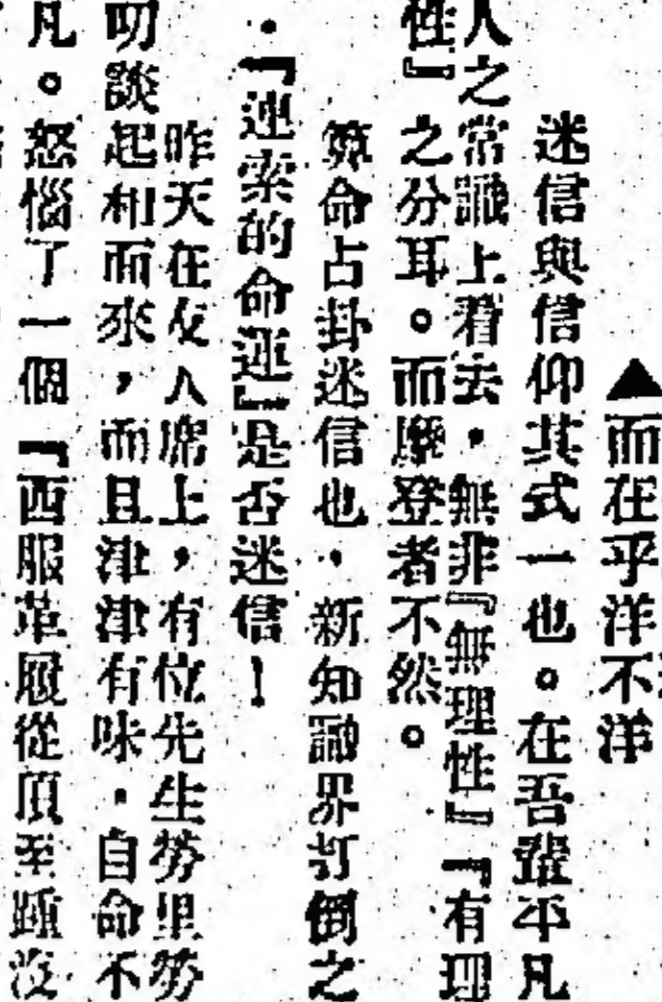 ▲而在乎洋不洋
迷信與信仰其式一也。在吾輩平凡
人之常識上看去，無非『無理性』『有理
性』之分耳。而摩登者不然。
算命占卦迷信也，新知識界打倒之
，『連索的命運』是否迷信！
昨天在友人席上，有位先生勞里勞
叨談起相面來，而且津津有味，自命不
凡。怒惱了一個『西服革履從頂至踵沒